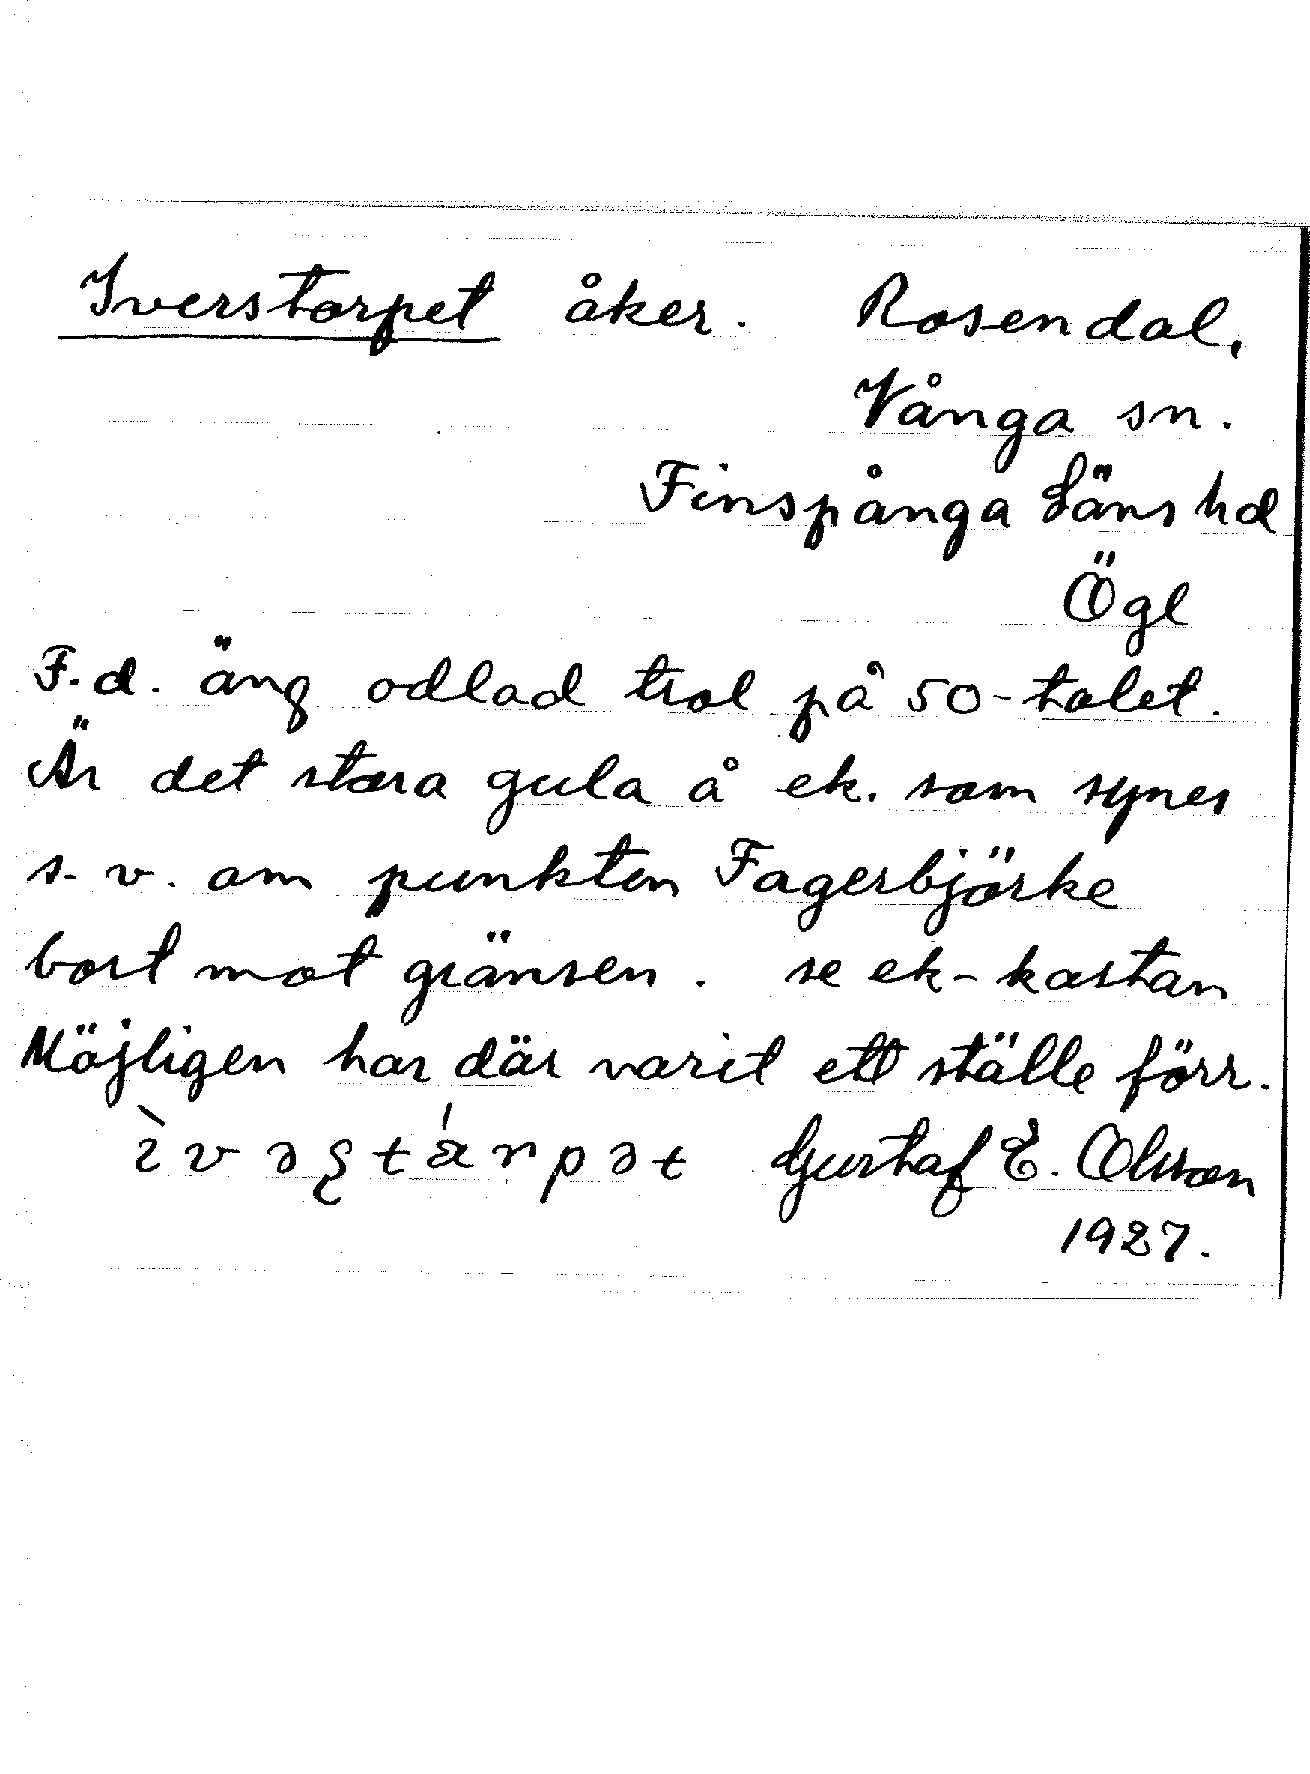 Iverstorpet åker. Rosendal,
Vånga sn.
Finspånga Läns hd
Ögl
F.d. äng odlad trol på 50-talet.
Är det stora gula å ek. som synes
s. v. om punkten Fagerbjörke
bort mot gränsen. se ek-kartan
Möjligen har där varit ett ställe förr.
Gustaf E. Olsson
1927.